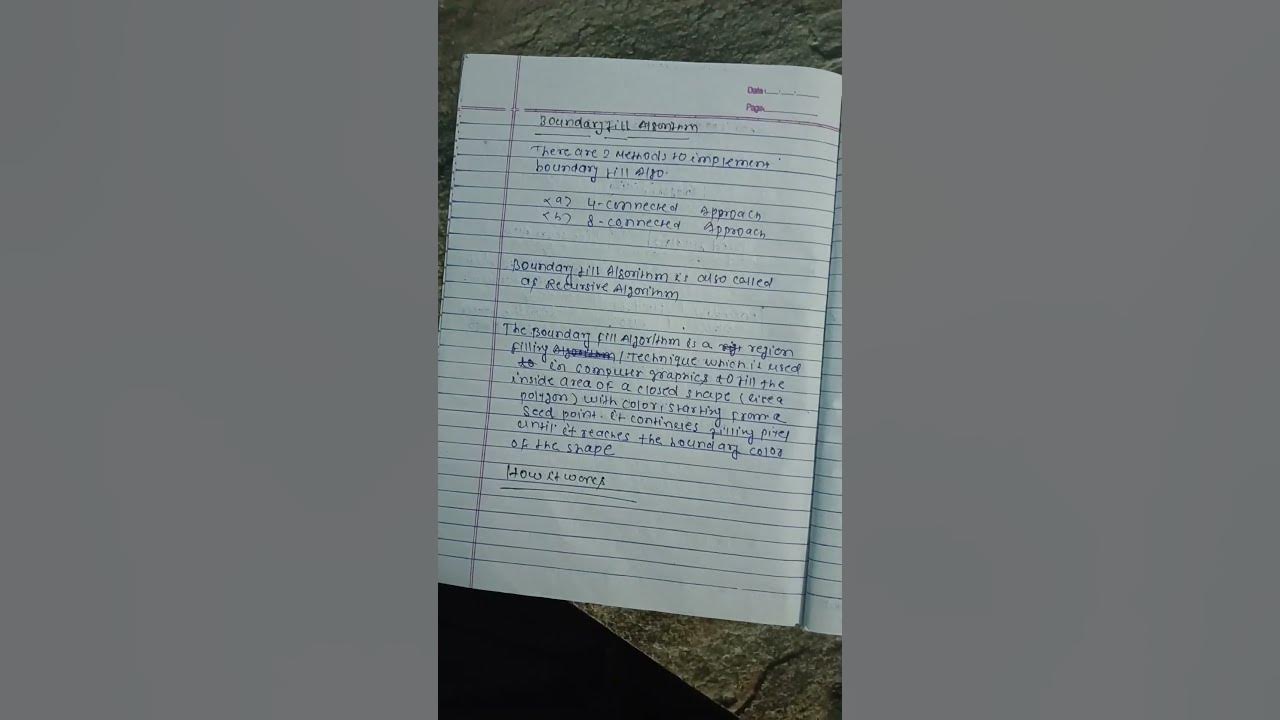 Date :
Page:
Boundary fill Algorithm
There are 2 Methods to implement
boundary fill Algo.
<a> 4-connected Approach
<b> 8-connected Approach
Boundary fill Algorithm is also called
as Recursive Algorithm
The Boundary fill Algorithm is a region
filling Algorithm / Technique which is used
to in computer graphics to fill the
inside area of a closed shape (like a
polygon) with color, starting from a
Seed point. it continues filling pixel
until it reaches the boundary color
of the shape
How it works